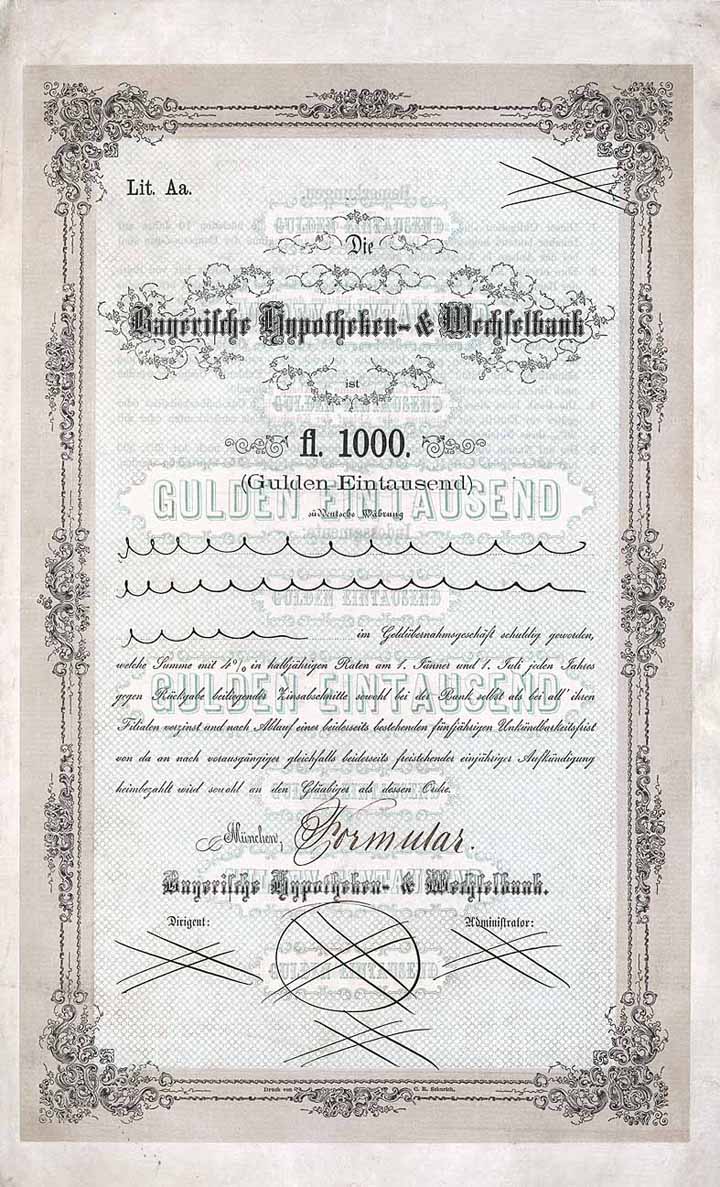 Lit. Aa.
Bemerkungen
GULDEN EINTAUSEND
Die
Bayerische Hypotheken- & Wechselbank
ist
GULDEN EINTAUSEND
fl. 1000.
(Gulden Eintausend)
GULDEN EINTAUSEND
süddeutsche Währung
GULDEN EINTAUSEND
im Geldübernahmsgeschäft schuldig geworden,
welche Summe mit 4% in halbjährigen Raten am 1. Jänner und 1. Juli jeden Jahres
gegen Rückgabe beiliegender Zinsabschnitte sowohl bei der Bank selbst als bei all' ihren
GULDEN EINTAUSEND
Filialen verzinst und nach Ablauf einer beiderseits bestehenden fünfjährigen Unkündbarkeitsfrist
von da an nach vorausgängiger gleichfalls beiderseits freistehender einjähriger Aufkündigung
heimbezahlt wird sowohl an den Gläubiger als dessen Ordre.
GULDEN EINTAUSEND
München, Formular.
Bayerische Hypotheken- & Wechselbank.
Dirigent:
Administrator:
GULDEN EINTAUSEND
Druck von